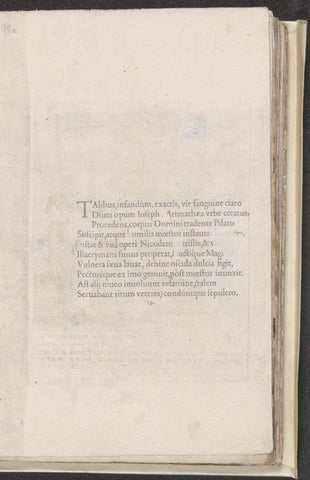 TAlibus, infandùm, exactis, vir sanguine claro
Diues opum Ioseph Arimathæa vrbe creatus,
Procedens, corpus Domini tradente Pilato
Suscipit, atque humilis mœstos instaurat
instat & vnà operi Nicodem tristis, &
Illacrymans funus properat,
Vulnera sæua lauat, dehinc oscula dulcia figit,
Pectoréque ex imo gemuit, pòst mœstus inunxit.
Ast alij niueo inuoluunt velamine, (talem
Seruabant ritum veteres) condúntque sepulcro.